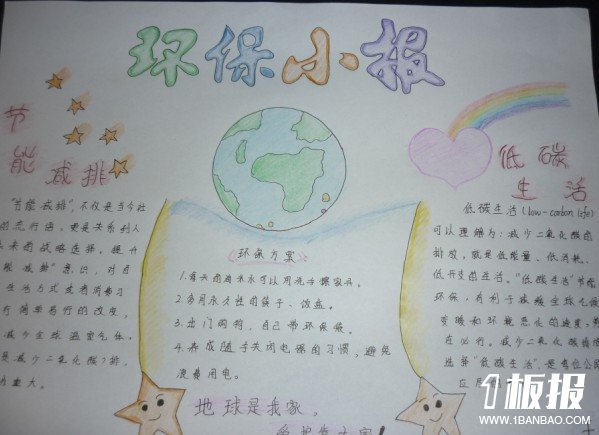 环保小报
节
能减排
"节能减排",不仅是当今社
的流行语,更是关系到人
未来的战略选择。提升
能减排"意识,对自
生活方式或者消费习
行简单易行的改变,
减少全球温室气体,
是减少二氧化碳)排,
重大。
环保方案
2.多用永久性的筷子、饭盒。
3.出门购物,自己带环保袋。
4.养成随手关闭电器的习惯,避免
浪费用电。
地球是我家,
低碳
生活
低碳生活(low-carbon life)
可以理解为:减少二氧化碳的
排放,就是低能量、低消耗、
低开支的生活。"低碳生活"节能
环保,有利于减缓全球气候
变暖和环境恶化的速度,势
在必行。减少二氧化碳排
选择"低碳生活",是每位公
1板报
WWW.1BANBAO.COM